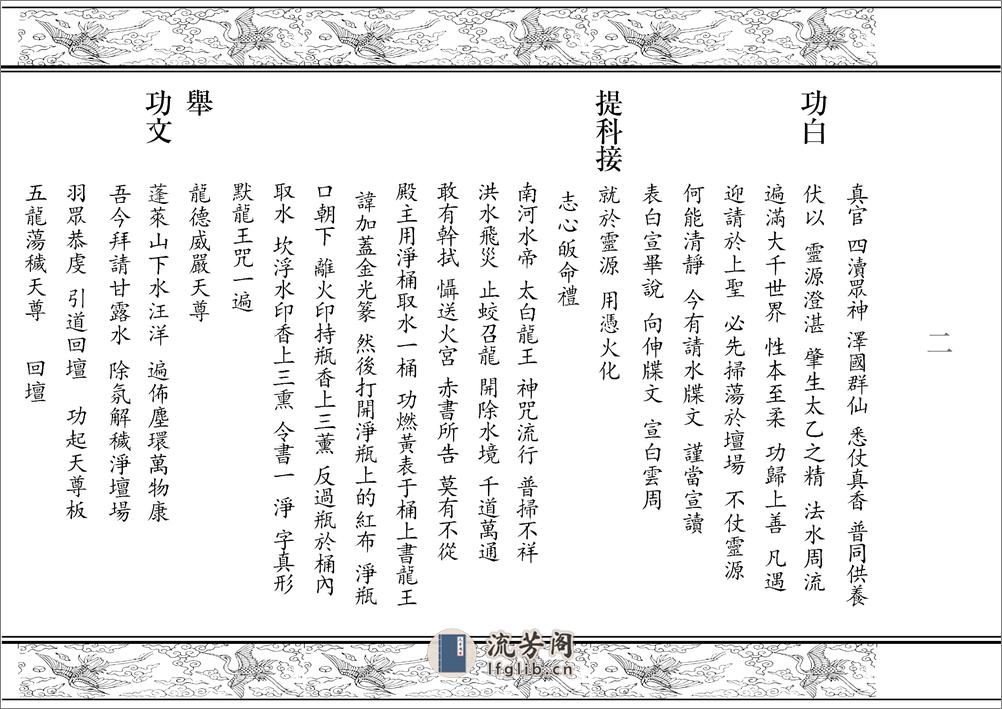 二
真官 四瀆眾神 澤國群仙 悉仗真香 普同供養
功白
伏以 靈源澄湛 肇生太乙之精 法水周流
遍滿大千世界 性本至柔 功歸上善 凡遇
迎請於上聖 必先掃蕩於壇場 不仗靈源
何能清靜 今有請水牒文 謹當宣讀
表白宣畢說 向伸牒文 宣白雲周
提科接
就於靈源 用憑火化
志心皈命禮
南河水帝 太白龍王 神咒流行 普掃不祥
洪水飛災 止蛟召龍 開除水境 千道萬通
敢有幹拭 懾送火宮 赤書所告 莫有不從
殿主用淨桶取水一桶 功燃黃表于桶上書龍王
諱加蓋金光篆 然後打開淨瓶上的紅布 淨瓶
口朝下 離火印持瓶香上三薰 反過瓶於桶內
取水 坎浮水印香上三熏 令書一 淨 字真形
默龍王咒一遍
舉
龍德威嚴天尊
功文
蓬萊山下水汪洋 遍佈塵環萬物康
吾今拜請甘露水 除氛解穢淨壇場
羽眾恭虔 引道回壇 功起天尊板
五龍蕩穢天尊 回壇
流芳阁
lfglib.cn